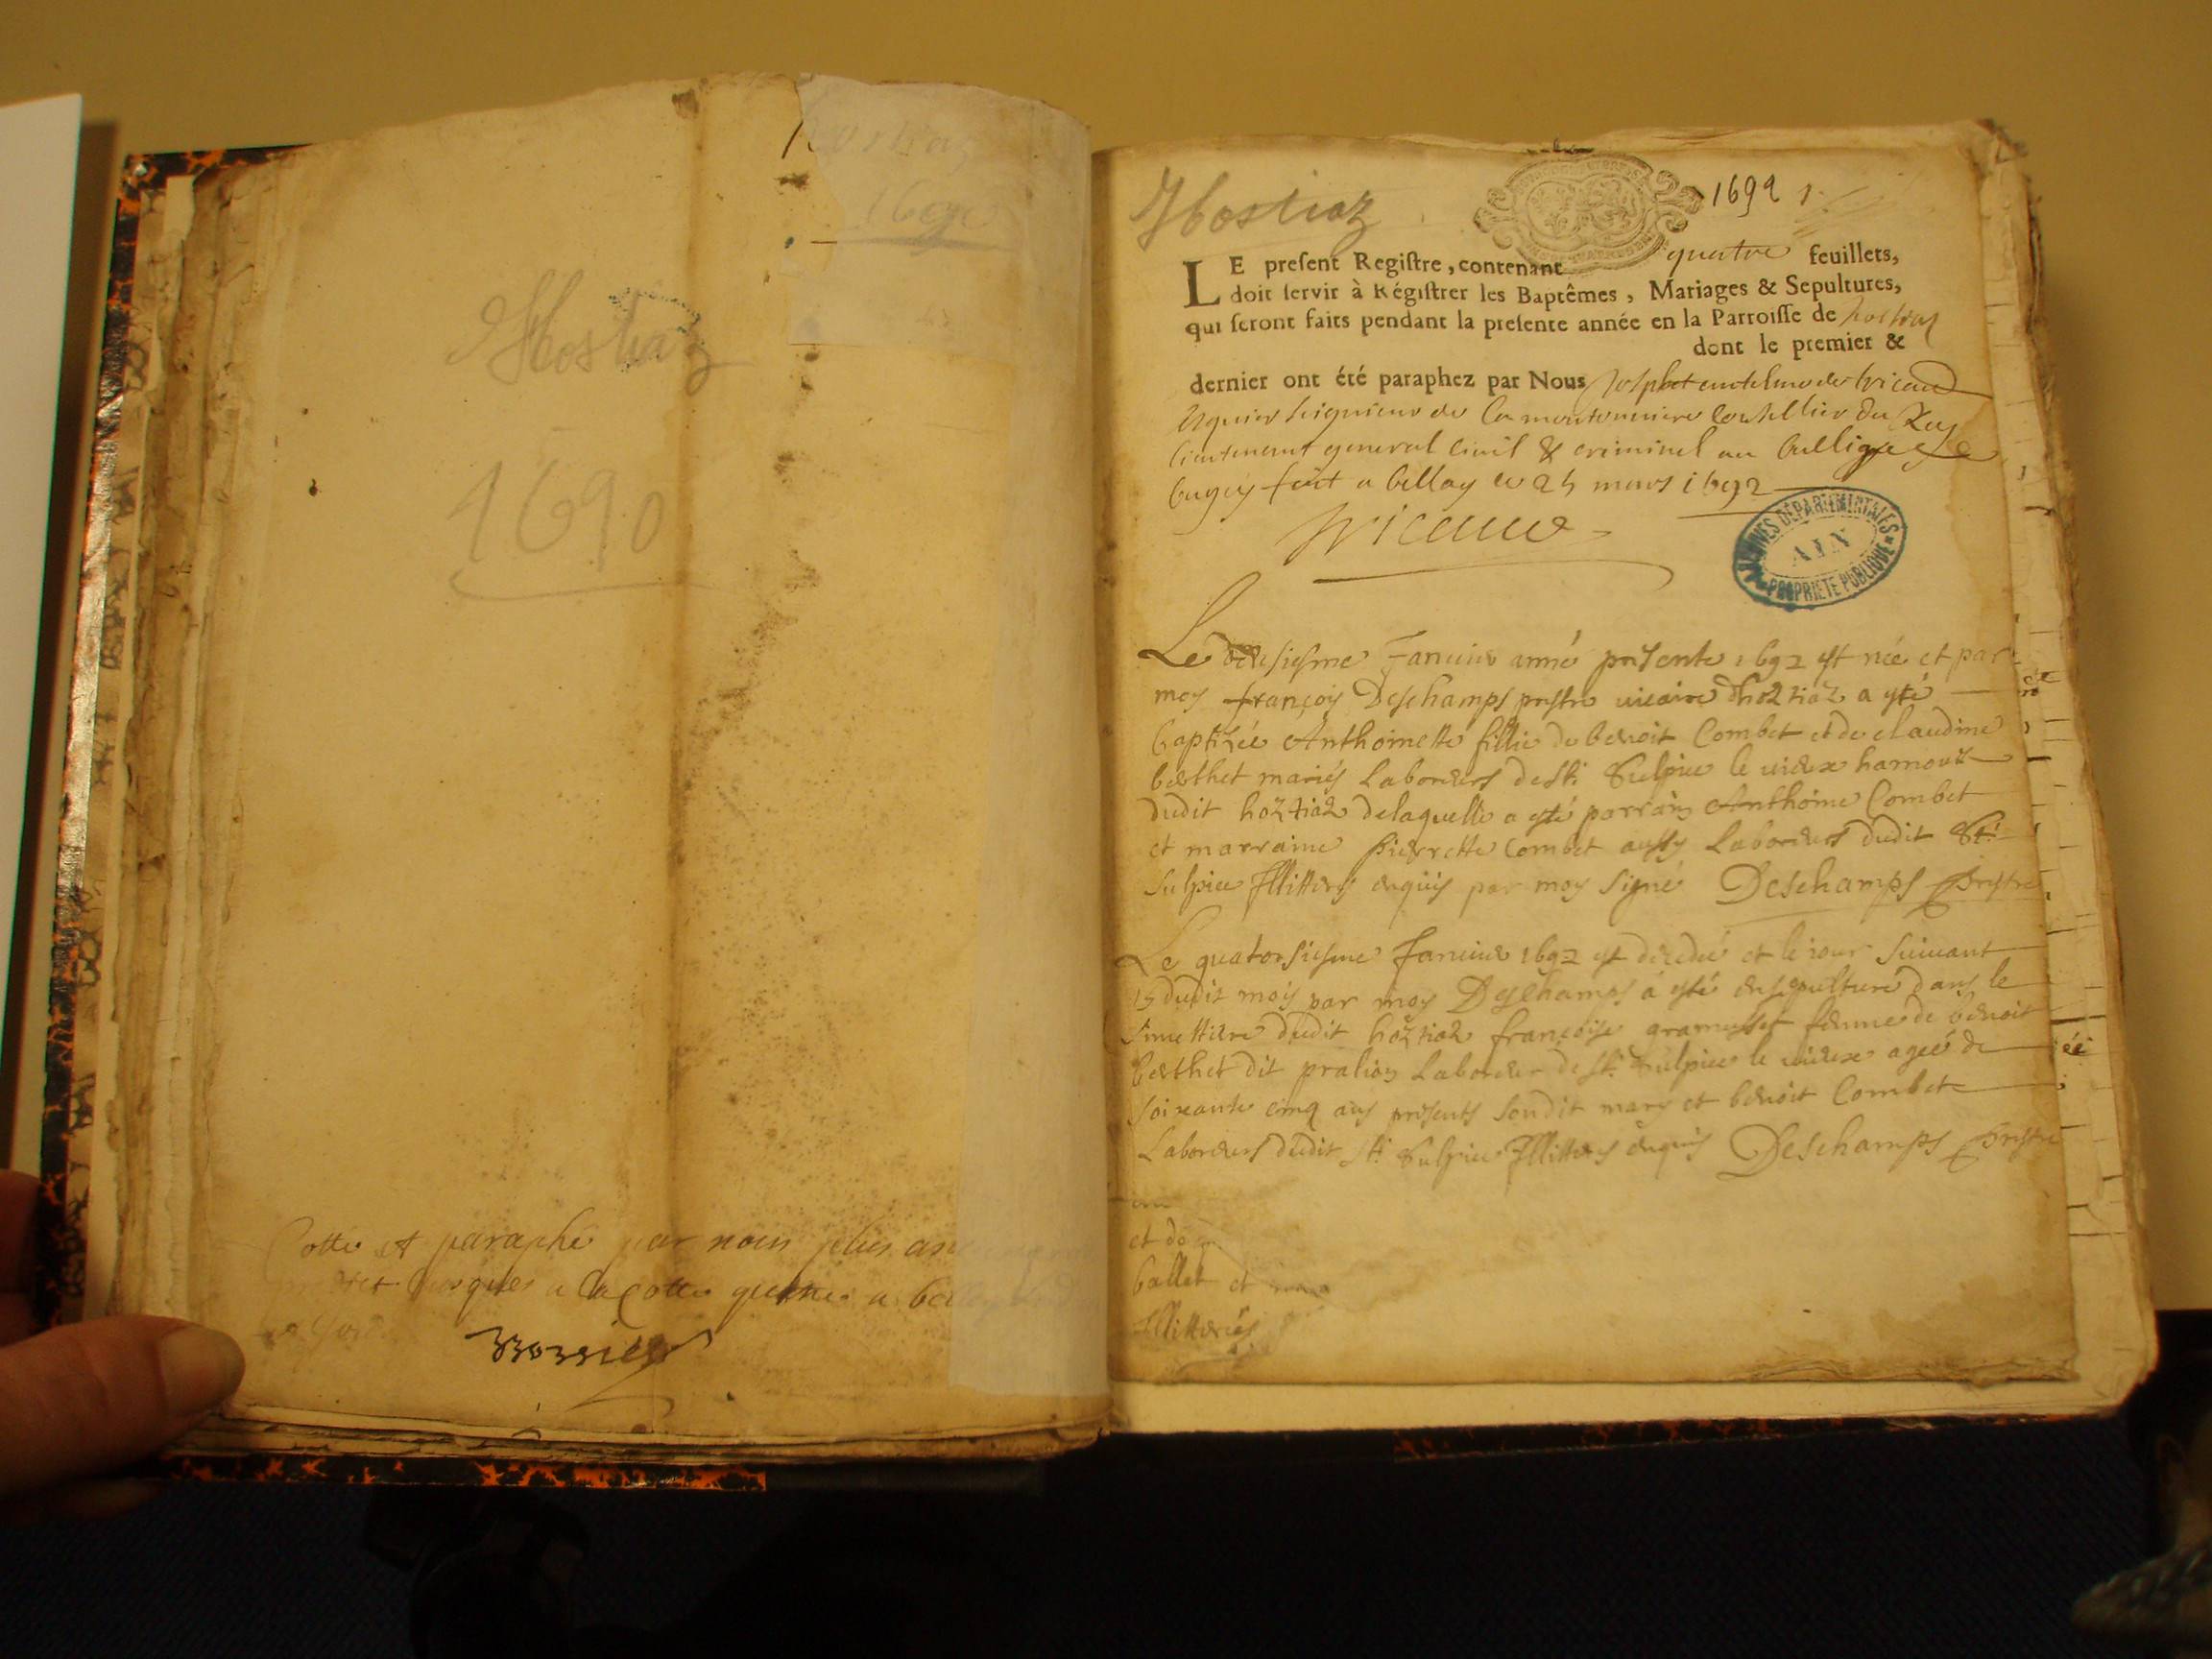 Hostiaz
1690
Cotté et paraphé par nous plus
jusques a la cotte
Hostiaz
1692 1
LE preſent Regiſtre, contenant quatre feuillets,
doit ſervir à Régiſtrer les Baptêmes, Mariages & Sepultures,
qui ſeront faits pendant la preſente année en la Parroiſſe de hostiaz
dont le premier &
dernier ont été paraphez par Nous
lieutenant general civil & criminel au
bugey fait a bellay le 25 mars 1692
ARCHIVES DÉPARTEMENTALES
AIN
PROPRIÉTÉ PUBLIQUE
Le Janvier année presente 1692 est née et par
moy françois Deschamps prestre vicaire dhoztiaz a esté
baptizée Anthoinette fillie de benoit Combet et de claudine
berthet mariés Laboreurs de St. Sulpice le vieux hamoux
dudit hoztiaz delaquelle a esté parrain Anthoine Combet
et marraine pierrette Combet aussy Laboreurs dudit St.
Sulpice Illitterés enquis par moy signé Deschamps prestre
Le quatorsiesme Janvier 1692 est decedée et le jour suivant
15 dudit mois par moy Deschamps a esté ensepulturé dans le
simettiere dudit hoztiaz françoise gramusset femme de benoit
berthet dit pralion Laboreur de St. Sulpice le vieux agée de
soixante cinq ans presents sondit mary et benoit Combet
Laboreurs dudit St. Sulpice Illitterés enquis Deschamps prestre
et de
ballet et
Illitterés